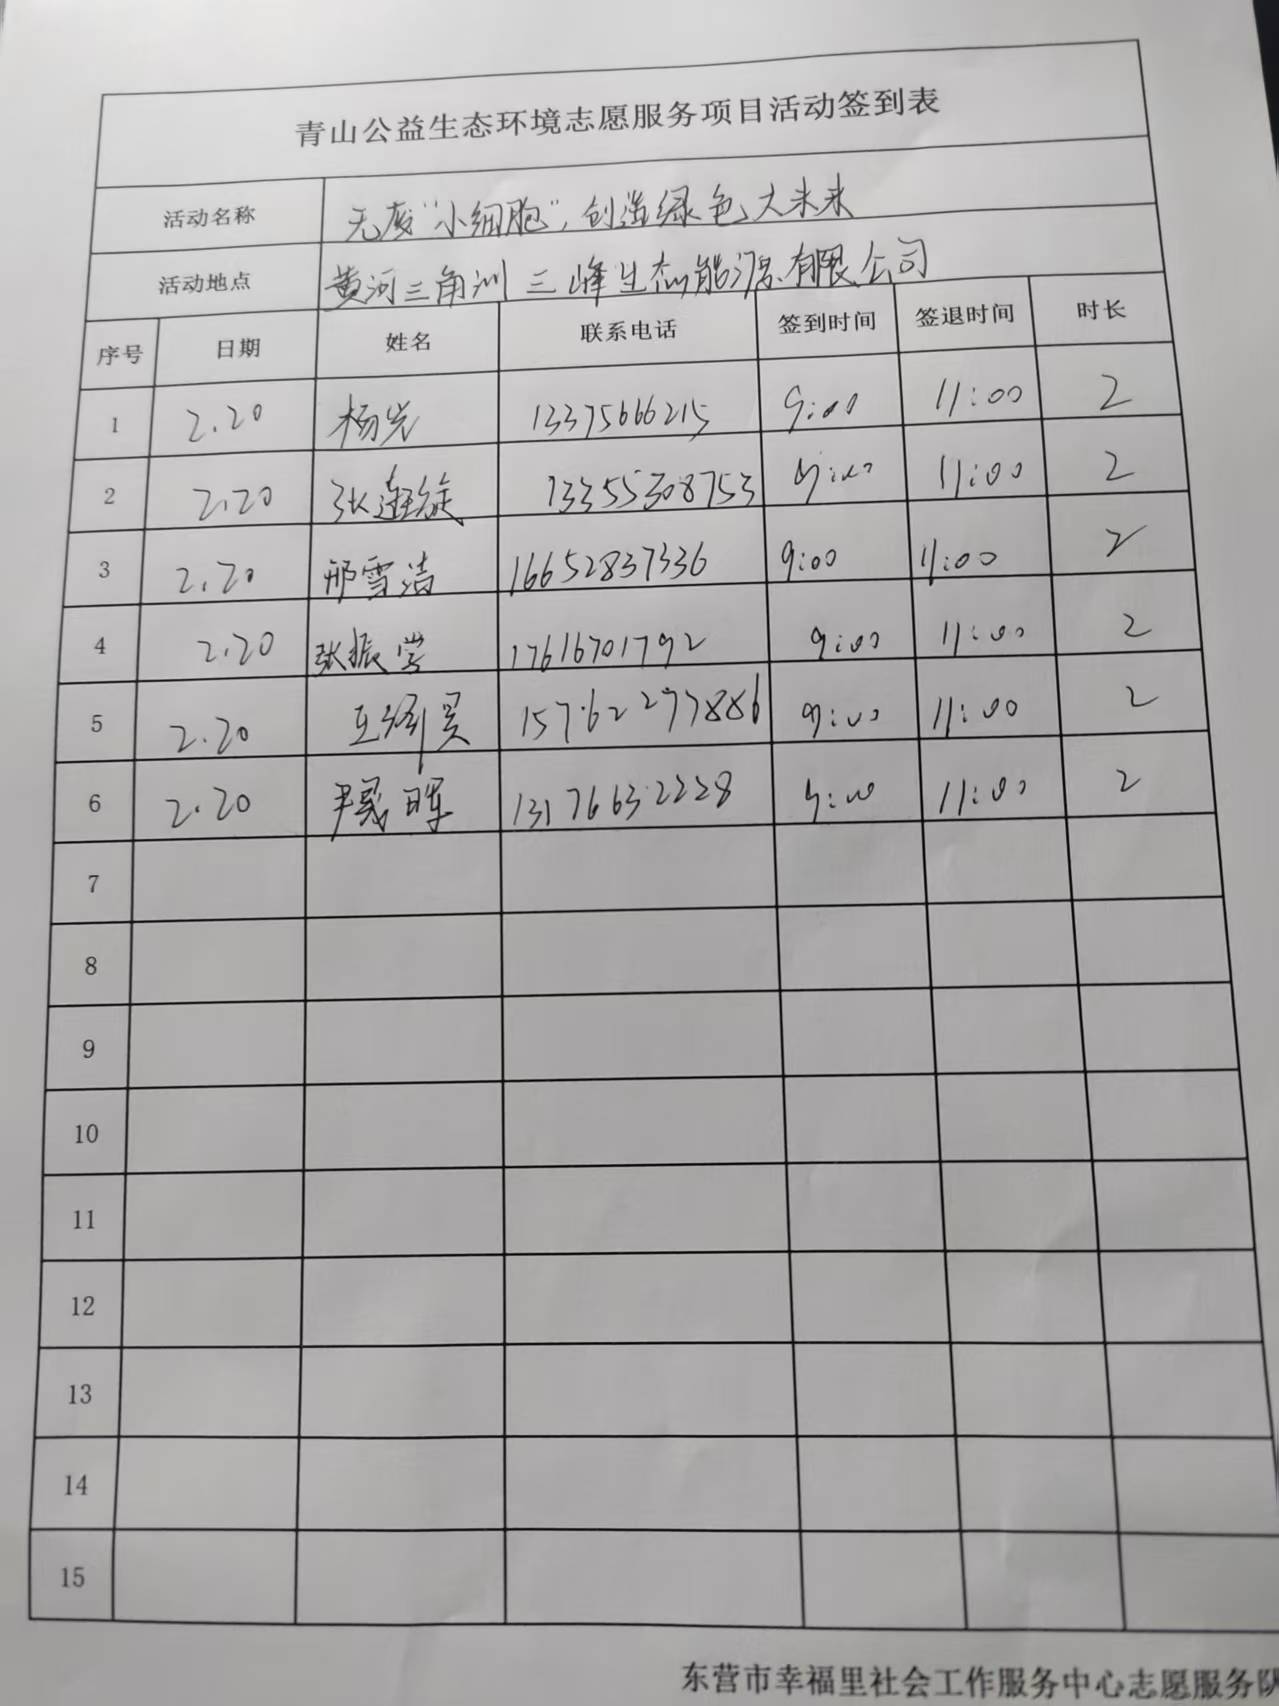 青山公益生态环境志愿服务项目活动签到表
活动名称 无废“小细胞”，创造绿色大未来
活动地点 黄河三角洲三峰生态能源有限公司
序号 日期 姓名 联系电话 签到时间 签退时间 时长
1 2.20 杨光 13375666215 9:00 11:00 2
2 2.20 张莲 13355308753 9:00 11:00 2
3 2.20 邢雪洁 16652837336 9:00 11:00 2
4 2.20 张振堂 17616701792 9:00 11:00 2
5 2.20 15762297886 9:00 11:00 2
6 2.20 尹 晖 13176632228 9:00 11:00 2
7
8
9
10
11
12
13
14
15
东营市幸福里社会工作服务中心志愿服务队